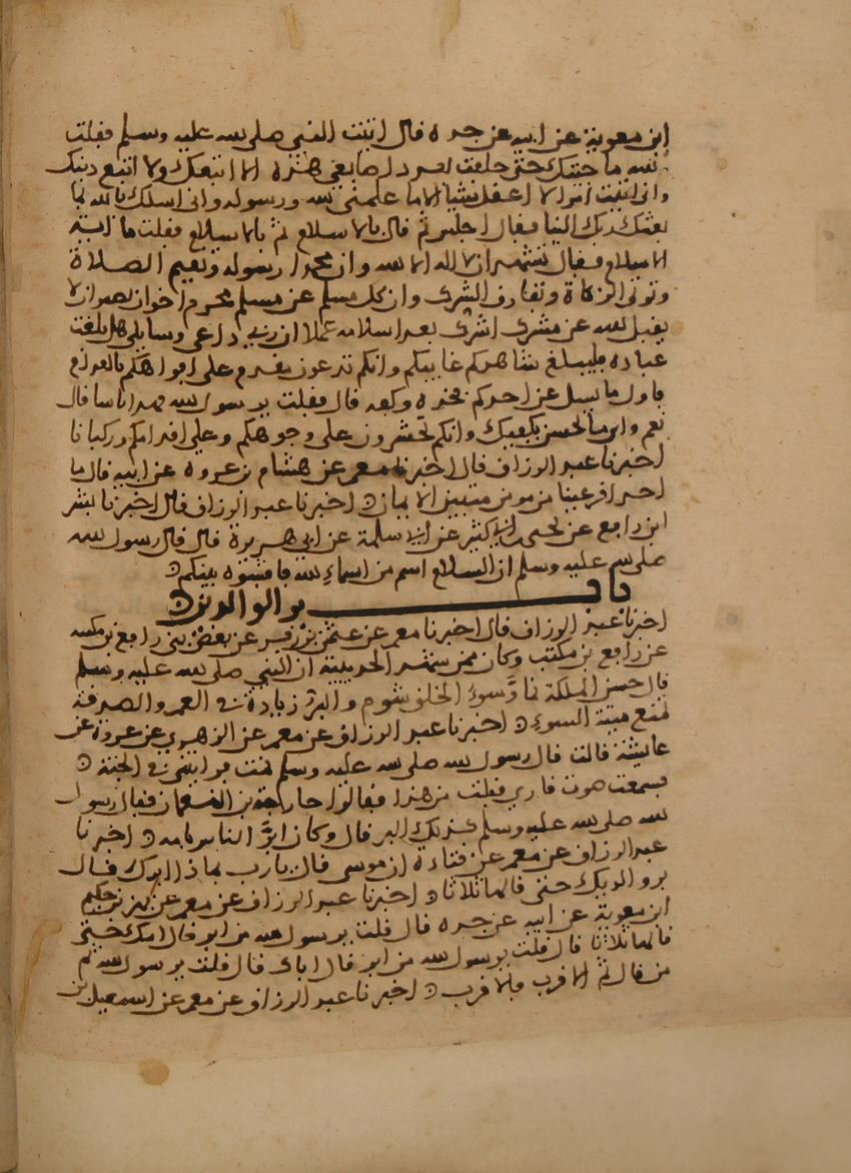 ابن معوية عن ابيه عن جده قال اتيت النبي صلى الله عليه وسلم فقلت
والله ما جئتك حتى حلفت بعدد اصابعي هذه الا اتبعك ولا اتبع دينك
واني اتيت امرا لا اعقل شيا الا ما علمني الله ورسوله واني اسلك بالله بما
بعثك ربك الينا فقال اجلس ثم قال بالاسلام ثم بالاسلام فقلت ما اية
الاسلام فقال تشهد ان لا اله الا الله وان محمدا رسوله وتقيم الصلاة
وتوتي الزكاة وتفارق الشرك وان كل مسلم عن مسلم محرم اخوان نصيران لا
يقبل الله عن مشرك اشرك بعد اسلامه عملا ان ربي داعي وسايلي هل بلغت
عباده فليبلغ شاهدكم غايبكم وانكم تدعون مفدم على افواهكم بالفدام
فاول ما يسل عن احدكم فخذه وكفه قال فقلت يرسول الله فهذا ديننا قال
نعم واين ما تحسن يكفيك وانكم تحشرون على وجوهكم وعلى اقدامكم وركبانا
اخبرنا عبد الرزاق قال اخبرنا معمر عن هشام بن عروة عن ابيه قال ما
احد اقر عينا من مومن الايمان اخبرنا عبد الرزاق قال اخبرنا بشر
ابن رافع عن يحيى بن ابي كثير عن ابي سلمة عن ابي هريرة قال قال رسول الله
صلى الله عليه وسلم ان السلام اسم من اسماء الله فافشوه بينكم
باب بر الوالدين
اخبرنا عبد الرزاق قال اخبرنا معمر عن عثمن بن زفر عن بعض بني رافع بن مكيث
عن رافع بن مكيث وكان ممن شهد الحديبية ان النبي صلى الله عليه وسلم
قال حسن الملكة نما وسوء الخلق شوم والبر زيادة في العمر والصدقة
تمنع ميتة السوء اخبرنا عبد الرزاق عن معمر عن الزهري عن عروة عن
عايشة قالت قال رسول الله صلى الله عليه وسلم نمت فرايتني في الجنة
فسمعت صوت قاري فقلت من هذا فقالوا حارثة بن النعمان فقال رسول
الله صلى الله عليه وسلم كذلك البر قال وكان ابر الناس بامه اخبرنا
عبد الرزاق عن معمر عن قتادة ان موسى قال يا رب بماذا ابرك قال
بر والديك حتى قالها ثلاثا اخبرنا عبد الرزاق عن معمر عن بهز بن حكيم
ابن معوية عن ابيه عن جده قال قلت يرسول الله من ابر قال امك حتى
قالها ثلاثا قال قلت يرسول الله من ابر قال اباك قال قلت يرسول الله ثم
من قال ثم الاقرب فالاقرب اخبرنا عبد الرزاق عن معمر عن اسمعيل بن